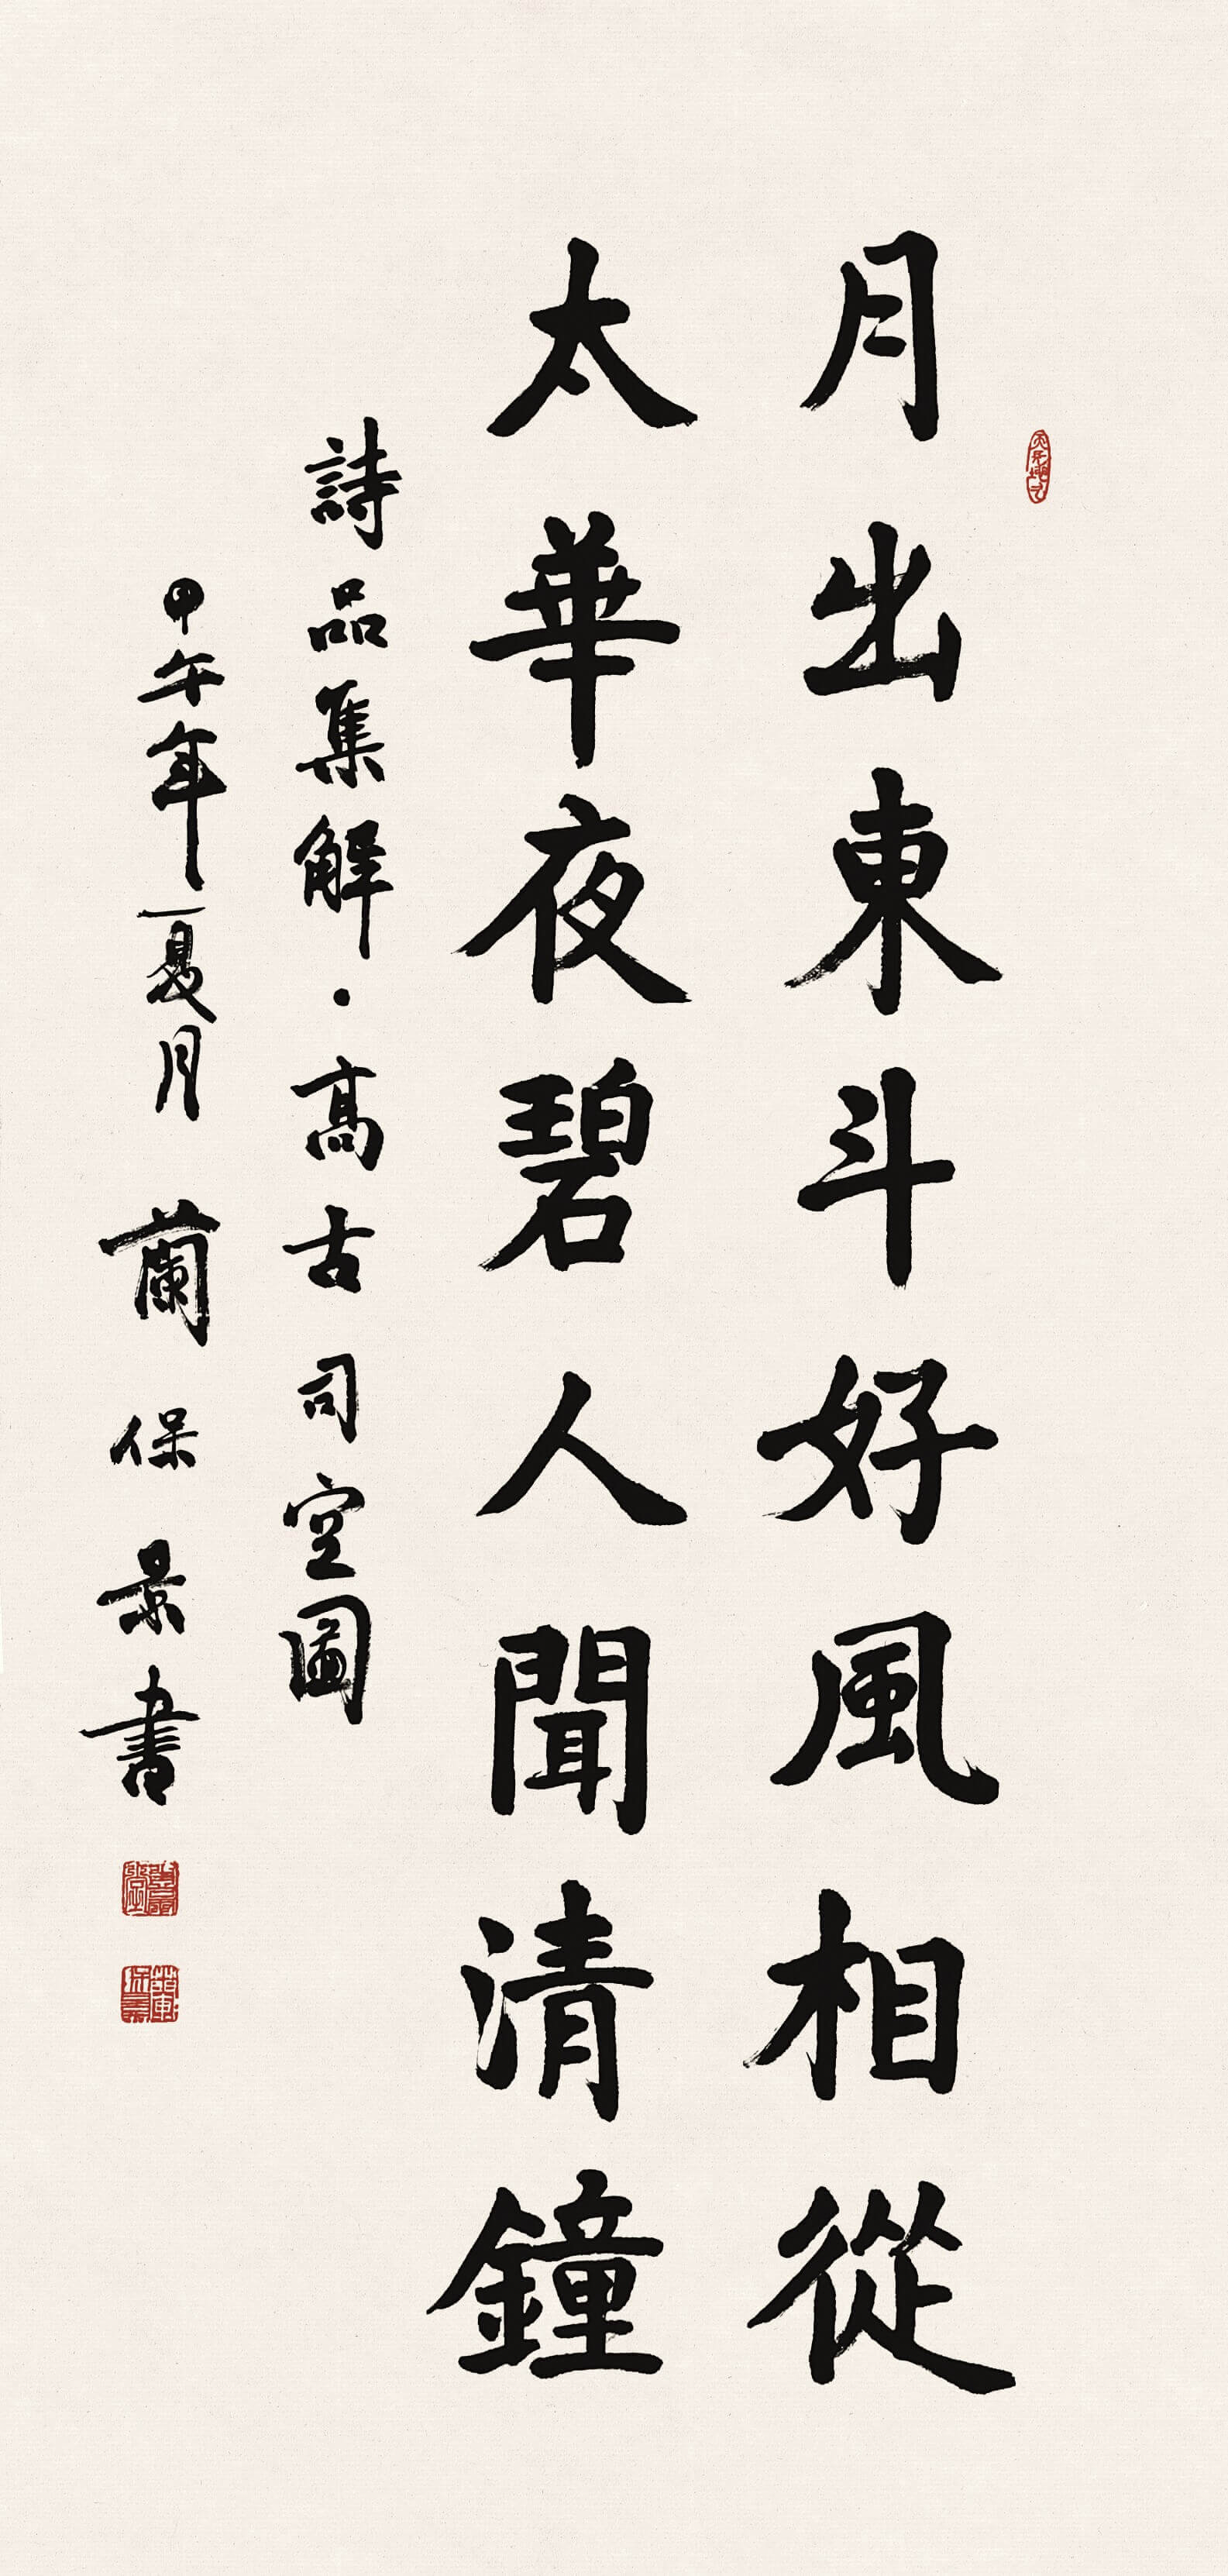 月出東斗好風相從
太華夜碧人聞清鐘
詩品集解·高古司空圖
甲午年夏月 蘭保景書